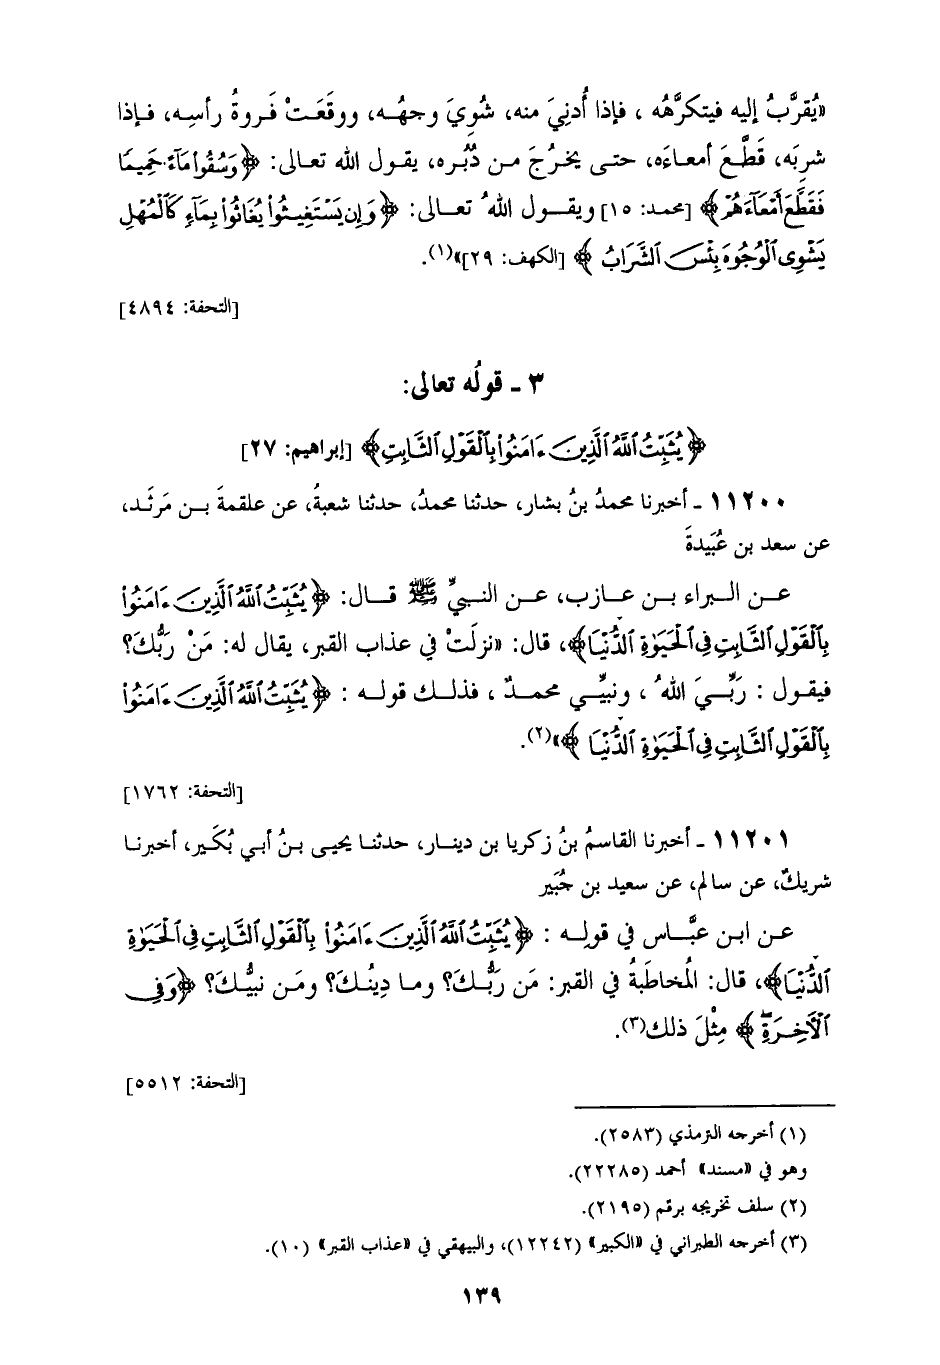 «يُقرَّبُ إليه فيتكرَّهُه ، فإذا أُدنِيَ منه، شُوِيَ وجهُـه، ووقَعَـتْ فَـروةُ رأسِـه، فـإذا
شربَه، قَطَّـعَ أمعـاءَه، حتـى يخـرُجَ مـن دُبُره، يقـول الله تعـالى: ﴿وَسُقُوا۟ مَآءً حَمِيمًا
فَقَطَّعَ أَمْعَآءَهُمْ﴾ [محمد: ١٥] ويقـول اللهُ تعـالى: ﴿وَإِن يَسْتَغِيثُوا۟ يُغَاثُوا۟ بِمَآءٍ كَٱلْمُهْلِ
يَشْوِى ٱلْوُجُوهَ بِئْسَ ٱلشَّرَابُ ﴾ [الكهف: ٢٩]»(١).
[التحفة: ٤٨٩٤]
٣ ـ قولُه تعالى:
﴿يُثَبِّتُ ٱللَّهُ ٱلَّذِينَ ءَامَنُوا۟ بِٱلْقَوْلِ ٱلثَّابِتِ﴾ [إبراهيم: ٢٧]
١١٢٠٠ ـ أخبرنا محمدُ بنُ بشار، حدثنا محمدُ، حدثنا شعبةُ، عن علقمةَ بـن مَرثَـد،
عن سعد بن عُبَيدةَ
عـن الـبراء بـن عـازب، عـن النبيِّ ﷺ قـال: ﴿يُثَبِّتُ ٱللَّهُ ٱلَّذِينَ ءَامَنُوا۟
بِٱلْقَوْلِ ٱلثَّابِتِ فِى ٱلْحَيَوٰةِ ٱلدُّنْيَا﴾، قال: «نزلَتْ في عذاب القبر، يقال له: مَنْ رَبُّكَ؟
فيقول : رَبِّـيَ اللهُ ، ونبيِّـي محمـدٌ ، فذلـك قولـه : ﴿يُثَبِّتُ ٱللَّهُ ٱلَّذِينَ ءَامَنُوا۟
بِٱلْقَوْلِ ٱلثَّابِتِ فِى ٱلْحَيَوٰةِ ٱلدُّنْيَا ﴾»(٢).
[التحفة: ١٧٦٢]
١١٢٠١ ـ أخبرنا القاسمُ بنُ زكريا بن دينـار، حدثنـا يحيـى بـنُ أبـي بُكَـير، أخبرنـا
شريكٌ، عن سالم، عن سعيد بن جُبَير
عـن ابـن عبَّـاس في قولـه : ﴿يُثَبِّتُ ٱللَّهُ ٱلَّذِينَ ءَامَنُوا۟ بِٱلْقَوْلِ ٱلثَّابِتِ فِى ٱلْحَيَوٰةِ
ٱلدُّنْيَا﴾، قال: المُخاطَبةُ في القبر: مَن رَبُّـكَ؟ ومـا دِينُـكَ؟ ومَـن نبيُّـكَ؟ ﴿وَفِى
ٱلْءَاخِرَةِ ﴾ مِثْلَ ذلك(٣).
[التحفة: ٥٥١٢]
(١) أخرجه الترمذي (٢٥٨٣).
وهو في «مسند» أحمد (٢٢٢٨٥).
(٢) سلف تخريجه برقم (٢١٩٥).
(٣) أخرجه الطبراني في «الكبير» (١٢٢٤٢)، والبيهقي في «عذاب القبر» (١٠).
١٣٩